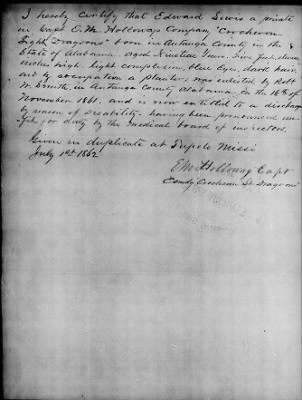 I hereby certify that Edward Lewis a private
in Capt E.M. Holloways Company "Crocheron
Light Dragoons" born in Autauga County in the
State of Alabama aged Nineteen Years. Five feet
inches high, light complexion, blue Eyes, dark hair,
and by occupation a planter, was enlisted by Robt
W. Smith, in Autauga County Alabama. On the 16th of
November 1861, and is now entitled to a discharge
by reason of disability having been pronounced un-
fit for duty by the medical board of inspectors.
Given in duplicate at Tupelo Missi
July 1st 1862
E M Holloway Capt
Comdg Crocheron Lt Dragoons